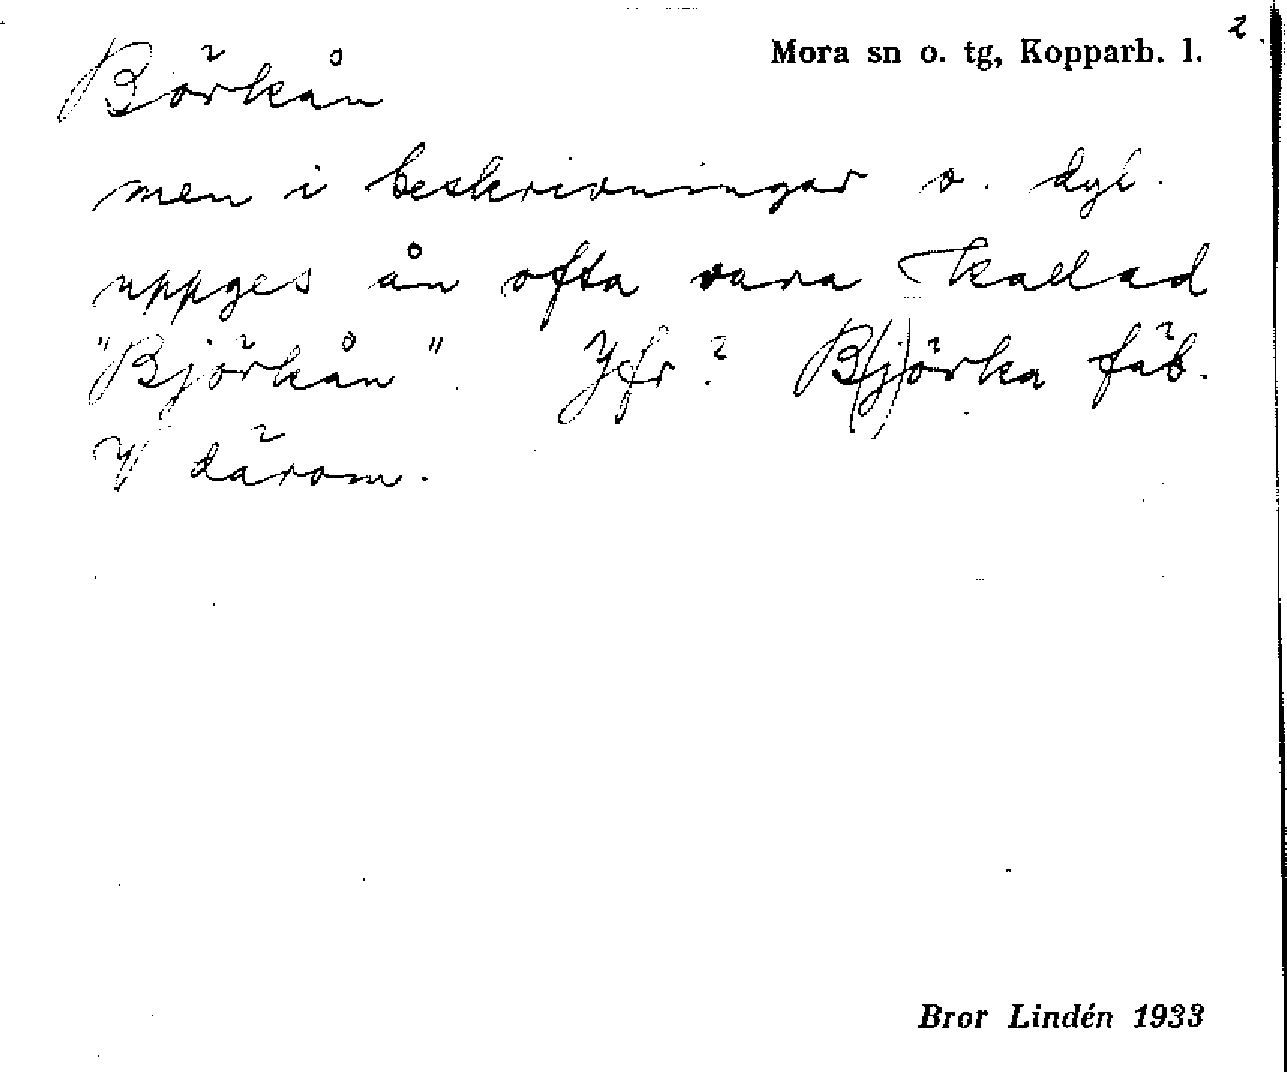 2
Mora sn o. tg, Kopparb. l.
Börkån
men i beskrivningar o. dyl.
uppges ån ofta vara kallad
"Björkån". Jfr? B(j)örka fäb.
V därom.
Bror Lindén 1933